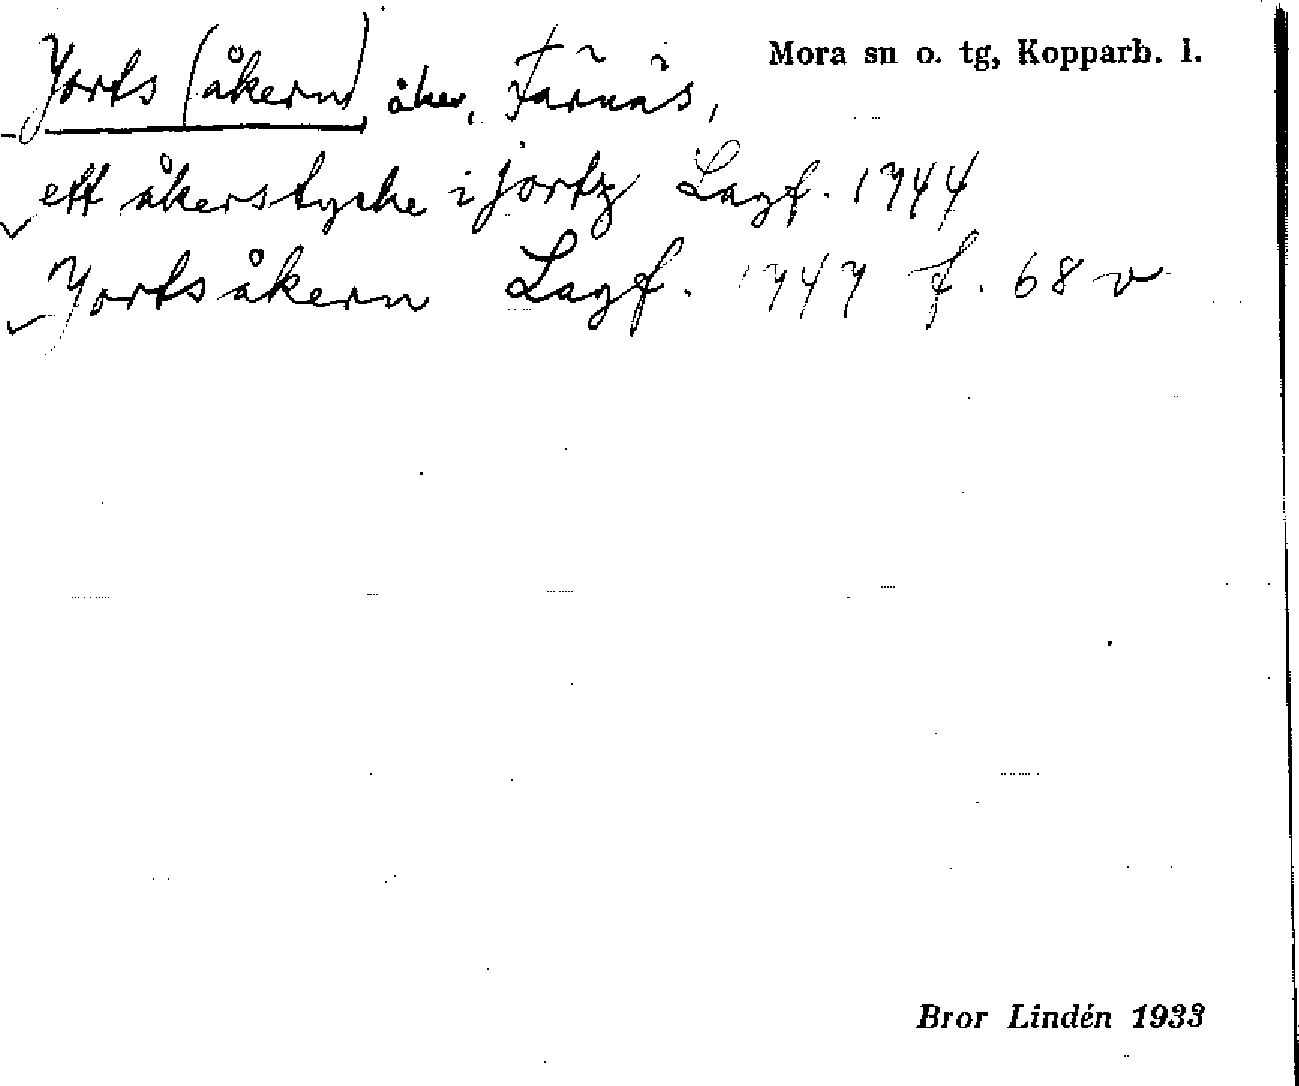 Jorts (åkern) åker, Färnäs, Mora sn o. tg, Kopparb. l.
ett åkerstycke i jortz Lagf. 1744
Jortsåkern Lagf. 1747 f. 68 v
Bror Lindén 1933